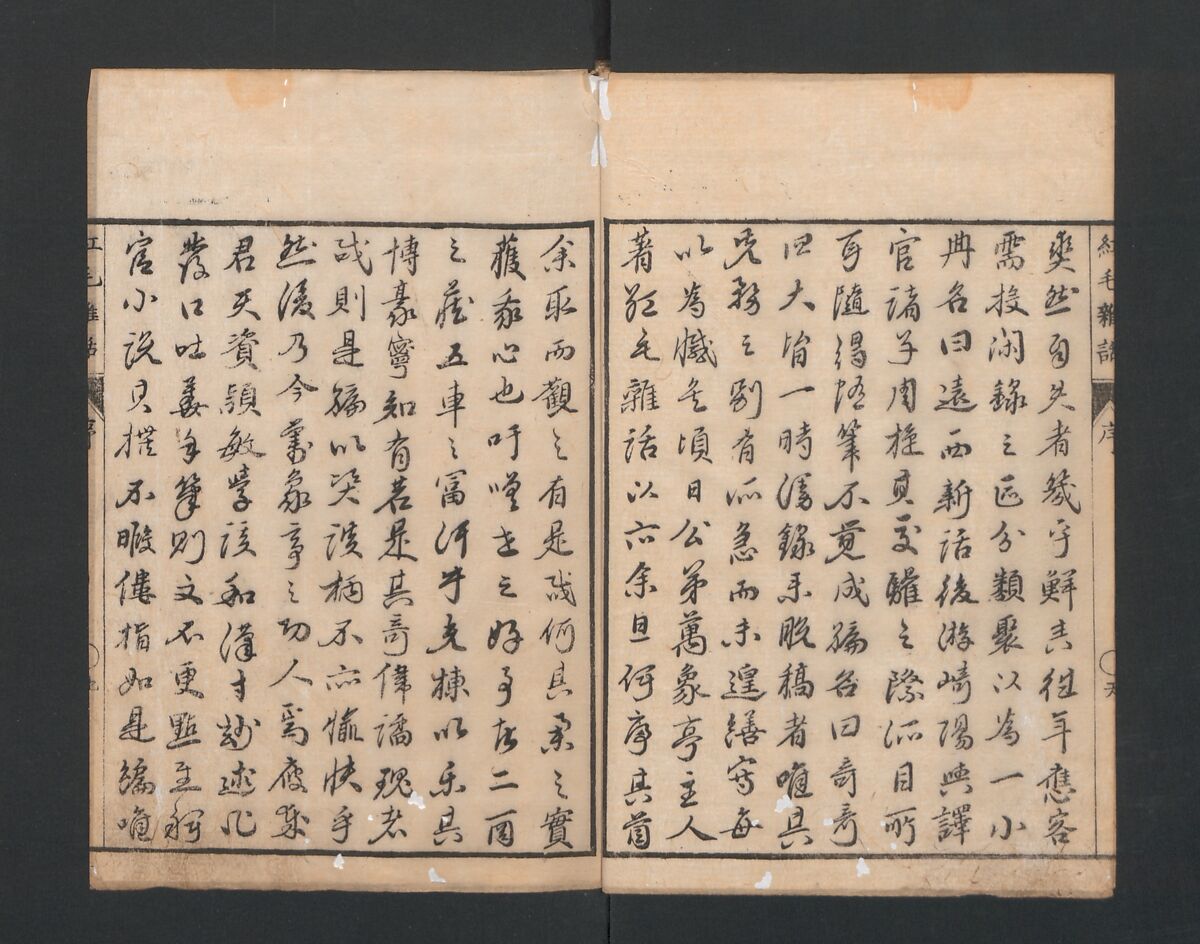 爽然自失者幾乎鮮矣往年應客
需投閑錄之區分類聚以為一小
冊名曰遠西新話後游崎陽與譯
官諸子周旋其交驩之際所目所
耳隨得隨筆不覺成編名曰奇奇
大皆一時漫錄未脫稿者唯其
務之劇有所急而未遑繕寫每
以為憾矣頃日公弟萬象亭主人
著紅毛雜話以示余且倩序其首
紅毛雜話 序
余取而觀之有是哉何其〻之實
獲我心也吁嗟世之好事者二酉
之藏五車之富汗牛充棟以樂其
博豪寧知有若是其奇偉譎瑰者
哉則是編以資談柄不亦愉快乎
然後乃今萬象亭之功人焉廢哉
君天資穎敏學該和漢才妙述凡
發口吐華手筆則文不更點至稗
官小說其撰不暇僂指如是編唯
紅毛雜話 序